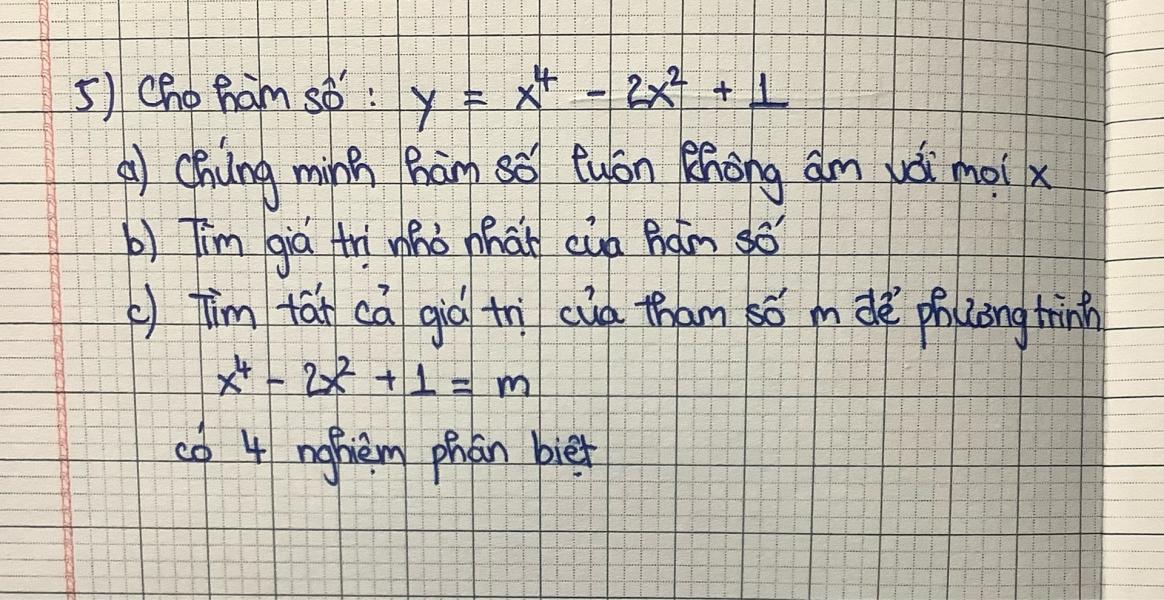 5) Cho hàm số : y = x⁴ - 2x² + 1
a) Chứng minh hàm số luôn không âm với mọi x
b) Tìm giá trị nhỏ nhất của hàm số
c) Tìm tất cả giá trị của tham số m để phương trình
x⁴ - 2x² + 1 = m
có 4 nghiệm phân biệt